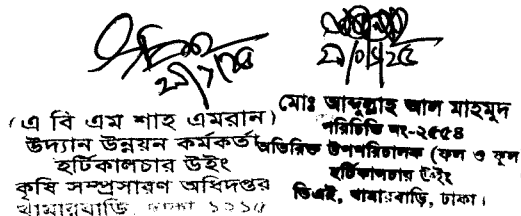 (এ বি এম শাহ এমরান)
উদ্যান উন্নয়ন কর্মকর্তা
হর্টিকালচার উইং
কৃষি সম্প্রসারণ অধিদপ্তর
খামারবাড়ি, ঢাকা ১২১৫
মোঃ আব্দুল্লাহ আল মাহমুদ
পরিচিতি নং-২৫৫৪
অতিরিক্ত উপপরিচালক (ফল ও ফুল
হর্টিকালচার উইং
ডিএই, খামারবাড়ি, ঢাকা।